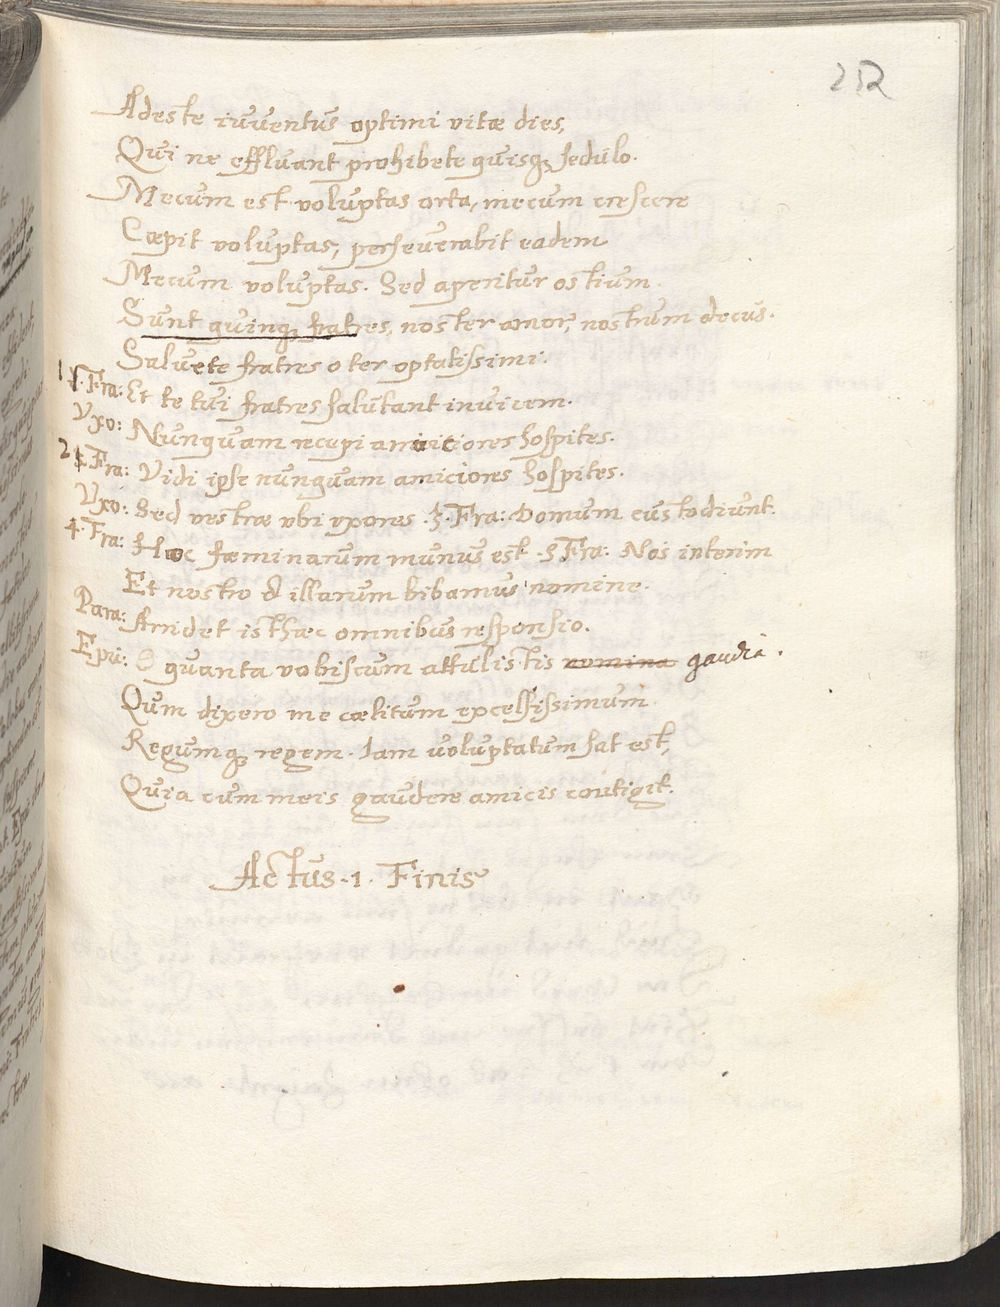 252
Adeste iuventus optimi vitæ dies,
Qui ne effluant prohibete quisq; sedulo.
Mecum est voluptas orta, mecum crescere
Cœpit voluptas, perseverabit eadem
Mecum voluptas. Sed aperitur ostium.
Sunt quinq; fratres, noster amor, nostrum decus.
Salvete fratres o ter optatissimi.
1. Fra: Et te tui fratres salutant invicem.
Uxo: Nunquam recepi amiciores hospites.
2 Fra: Vidi ipse nunquam amiciores hospites.
Uxo: Sed vestræ ubi uxores. 3. Fra: Domum custodiunt.
4. Fra: Hoc fæminarum munus est. 5 Fra: Nos interim
Et nostro & illarum bibamus nomine.
Para: Arridet isthæc omnibus responsio.
Epu: O quanta vobiscum attulistis nomina gaudia.
Qum dixero me cælitum excelsissimum
Regumq; regem. Iam voluptatum sat est,
Quia cum meis gaudere amicis contigit.
Actus. 1. Finis